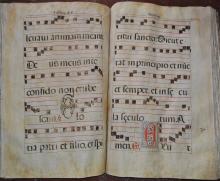 leuaui animam meam
De us meus in te
confido non erube
scam
tria pati et filio, et spi
ritui sancto. Sicut e
rat in principio et nunc
et semper, et in secu
la seculo rum. A
men.